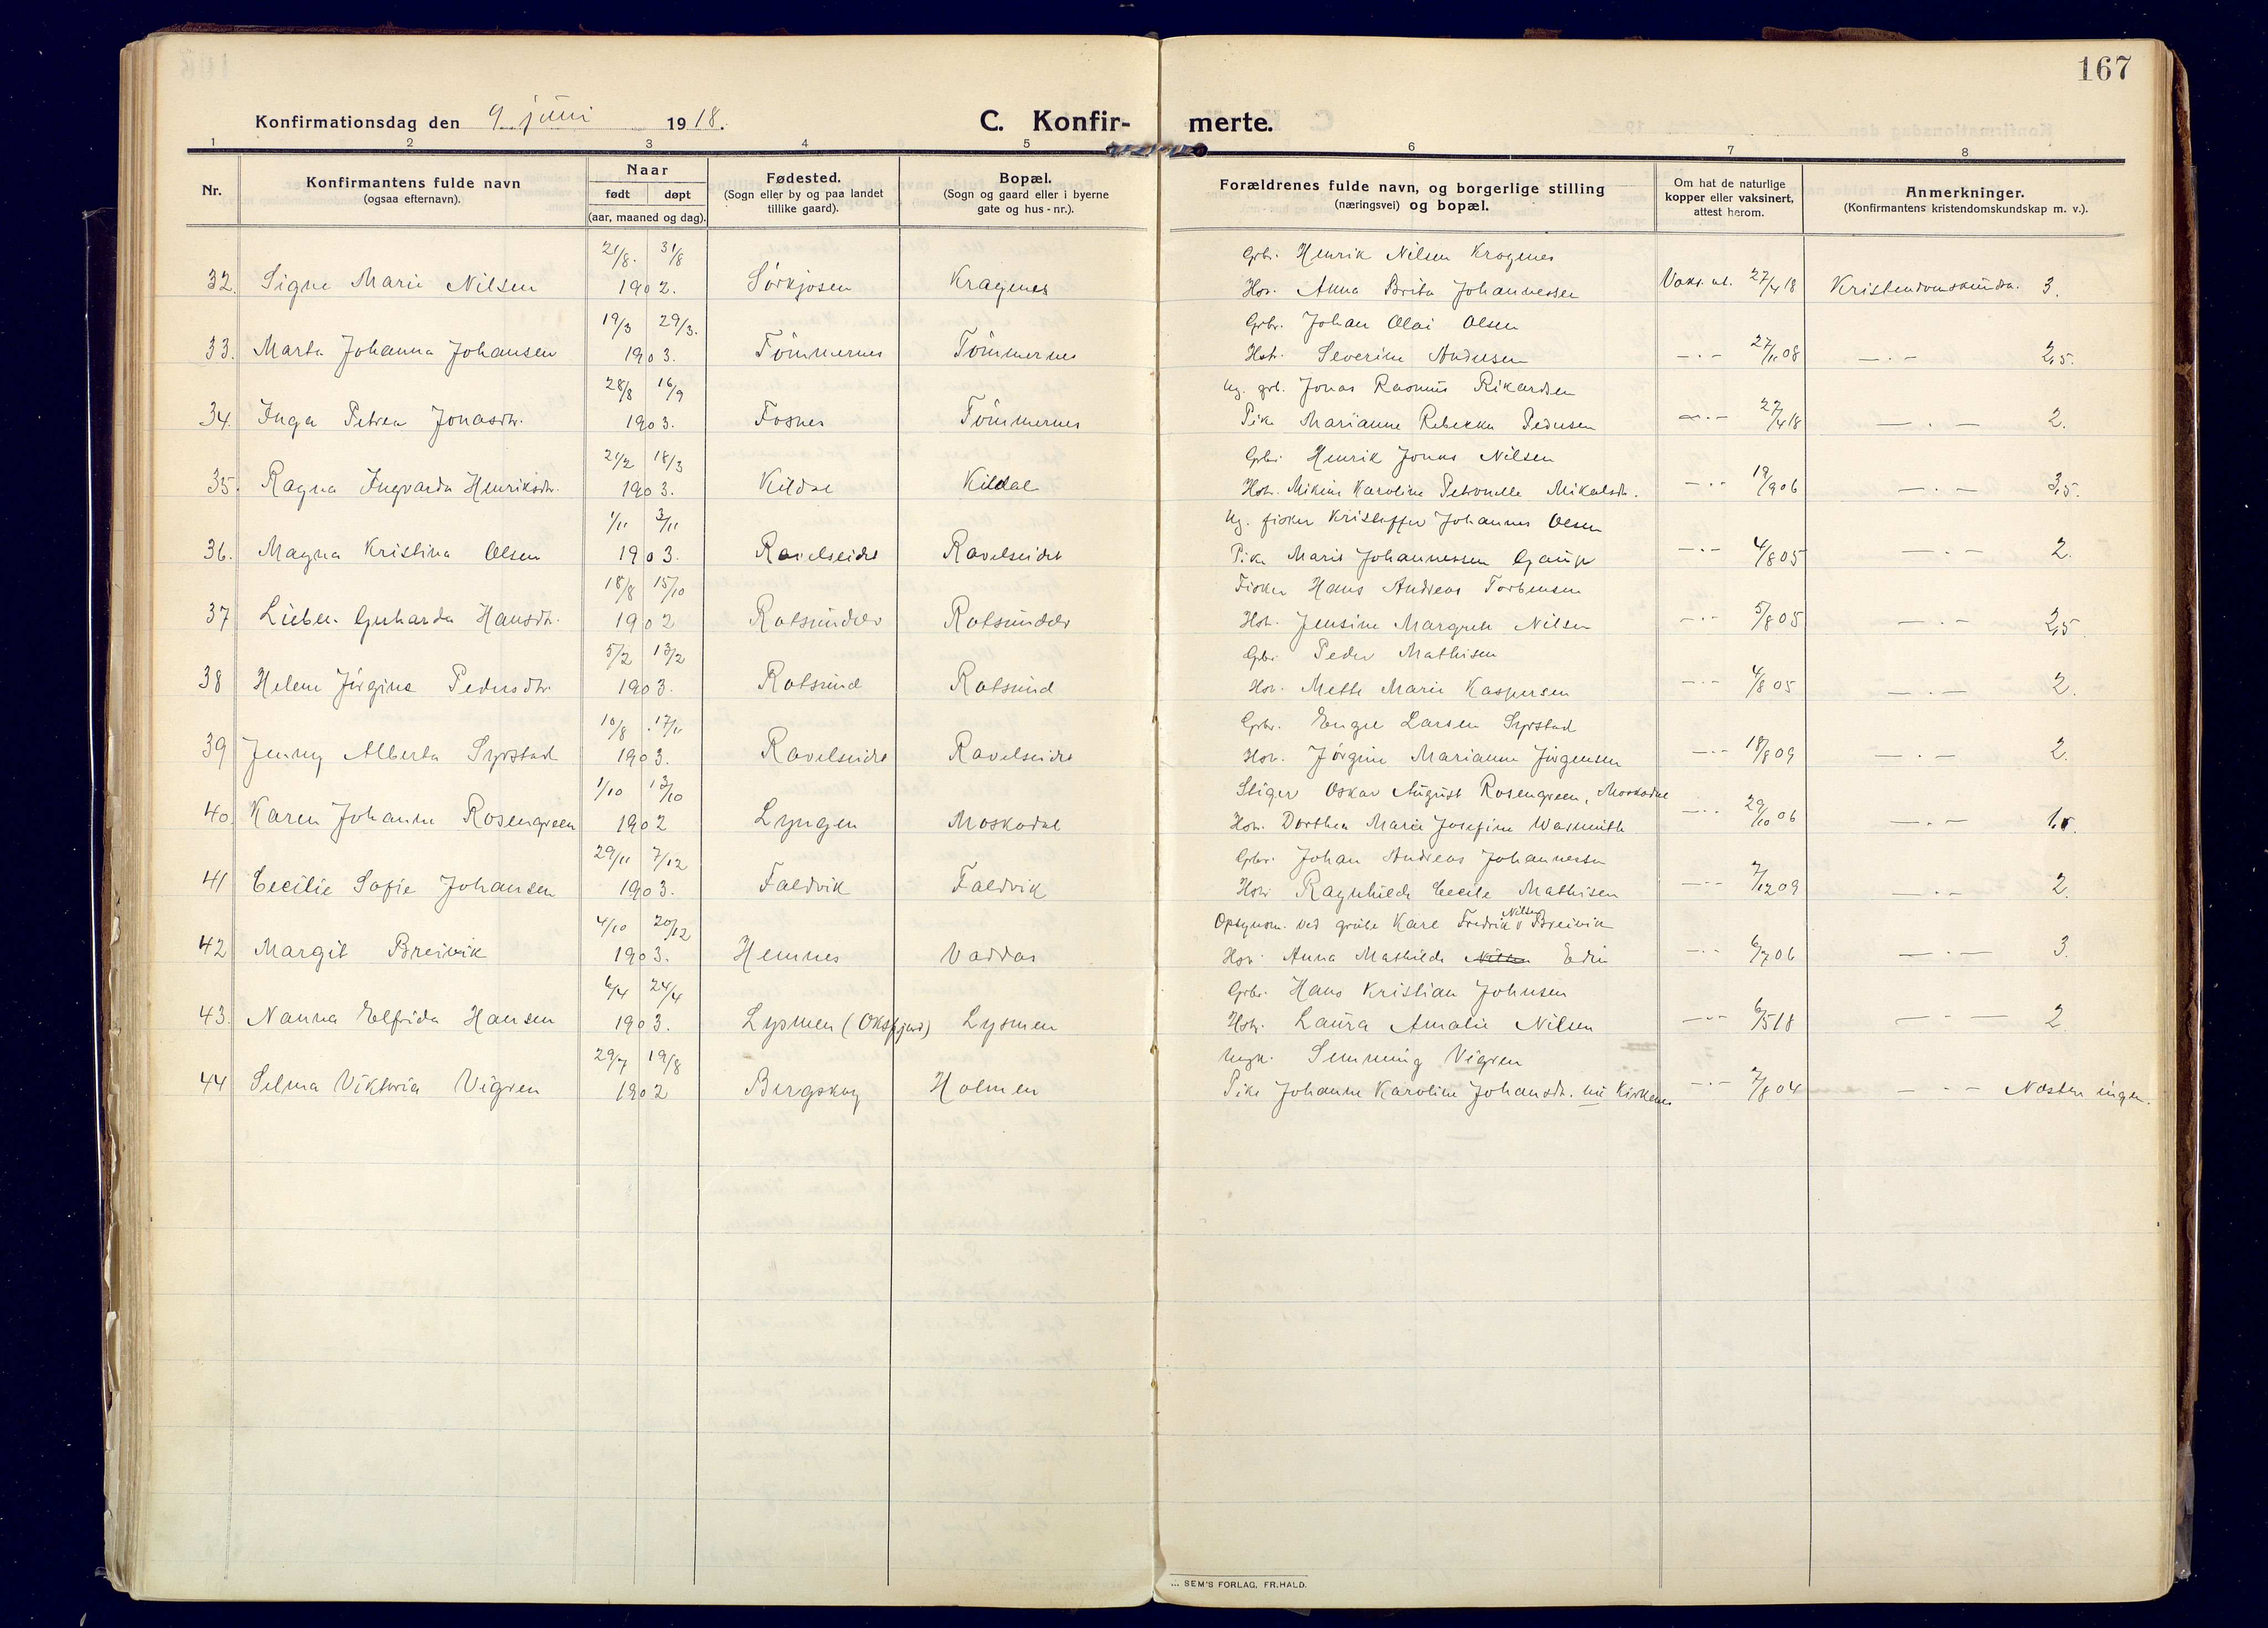 167
Konfirmationsdag den 9 juni 1918.
C. Konfir- merte.
1 2 3 4 5 6 7 8
Nr.
Konfirmantens fulde navn
(ogsaa efternavn).
Naar
født døpt
(aar, maaned og dag).
Fødested.
(Sogn eller by og paa landet
tillike gaard).
Bopæl.
(Sogn og gaard eller i byerne
gate og hus-nr.).
Forældrenes fulde navn, og borgerlige stilling
(næringsvei) og bopæl.
Om hat de naturlige
kopper eller vaksinert,
attest herom.
Anmerkninger.
(Konfirmantens kristendomskundskap m. v.).
21/8. 31/8 Grbr. Henrik Nilsen Kragenes
32. Signe Marie Nilsen 1902. Sørkjosen Kragenes Hov. Anna Brita Johannessen Vaks. at. 27/4 18 Kristendomskundsk. 3.
19/3 29/3. Grbr. Johan Olai Olsen
33. Marta Johanna Johansen 1903. Tömmernes Tömmernes Hstr. Severine Andersen —·— 27/11 08 —·— 2,5.
28/8 16/9 Ug. grb. Jonas Rasmus Rikardsen
34. Inga Petrea Jonasdtr. 1903. Fosnes Tömmernes Pike Marianne Rebekka Pedersen —·— 27/4 18 —·— 2.
21/2 18/3 Grbr. Henrik Jonas Nilsen
35. Ragna Ingvarda Henriksdtr. 1903. Kildal Kildal Hstr. Mikine Karoline Petronelle Mikalsdtr. —·— 19/9 06 —·— 3,5.
1/11 3/11 Ug. fisker Kristoffer Johannes Olsen
36. Magna Kristina Olsen 1903. Ravelseidet Ravelseidet Pike Marie Johannessen Gaup —·— 4/8 05 —·— 2.
18/8 15/10 Fisker Hans Andreas Torbensen
37 Lieber Gerharda Hansdtr. 1902 Rotsundelv Rotsundelv Hstr. Jensine Margrete Nilsen —·— 5/8 05 —·— 2,5
5/2 13/2 Grbr Peder Mathisen
38 Helene Jørgine Pedersdtr. 1903. Rotsund Rotsund Hov. Mette Marie Kaspersen —·— 4/8 05 —·— 2.
10/8 17/11 Grbr. Enge Larsen Syrstad
39 Jenny Alberta Syrstad 1903. Ravelseidet Ravelseidet Hov. Jørgine Marianne Jörgensen —·— 18/8 09 —·— 2.
1/10 13/10 Stiger Oskar August Rosengreen, Moskodal
40. Karen Johanne Rosengreen 1902 Lyngen Moskodal Hov. Dorthea Marie Josefine Warmuth —·— 29/10 06 —·— 1,5.
29/11 7/12 Grbr. Johan Andreas Johannessen
41 Cecilie Sofie Johansen 1903. Faldvik Faldvik Hstr. Ragnhilda Cecilie Mathisen —·— 7/12 09 —·— 2.
4/10 20/12 Opsynsm. ved grube Karl Fredrik Nilsen Breivik
42 Margit Breivik 1903. Hemnes Vaddas Hov. Anna Mathilde Nilsen Edin —·— 6/7 06 —·— 3.
6/4 24/4 Grbr. Hans Kristian Johnsen
43. Nanna Elfrida Hansen 1903. Lysmen (Oksfjord) Lysmen Hstr. Laura Amalie Nilsen —·— 6/5 18 —·— 2
29/7 19/8 Ungk. Semming Vigren
44 Selma Viktoria Vigren 1902 Bergskog Holmen Pike Johanne Karoline Johansdtr. nu Kirkenes —·— 7/8 04 —·— Næsten ingen.
SEM'S FORLAG, FR. HALD.